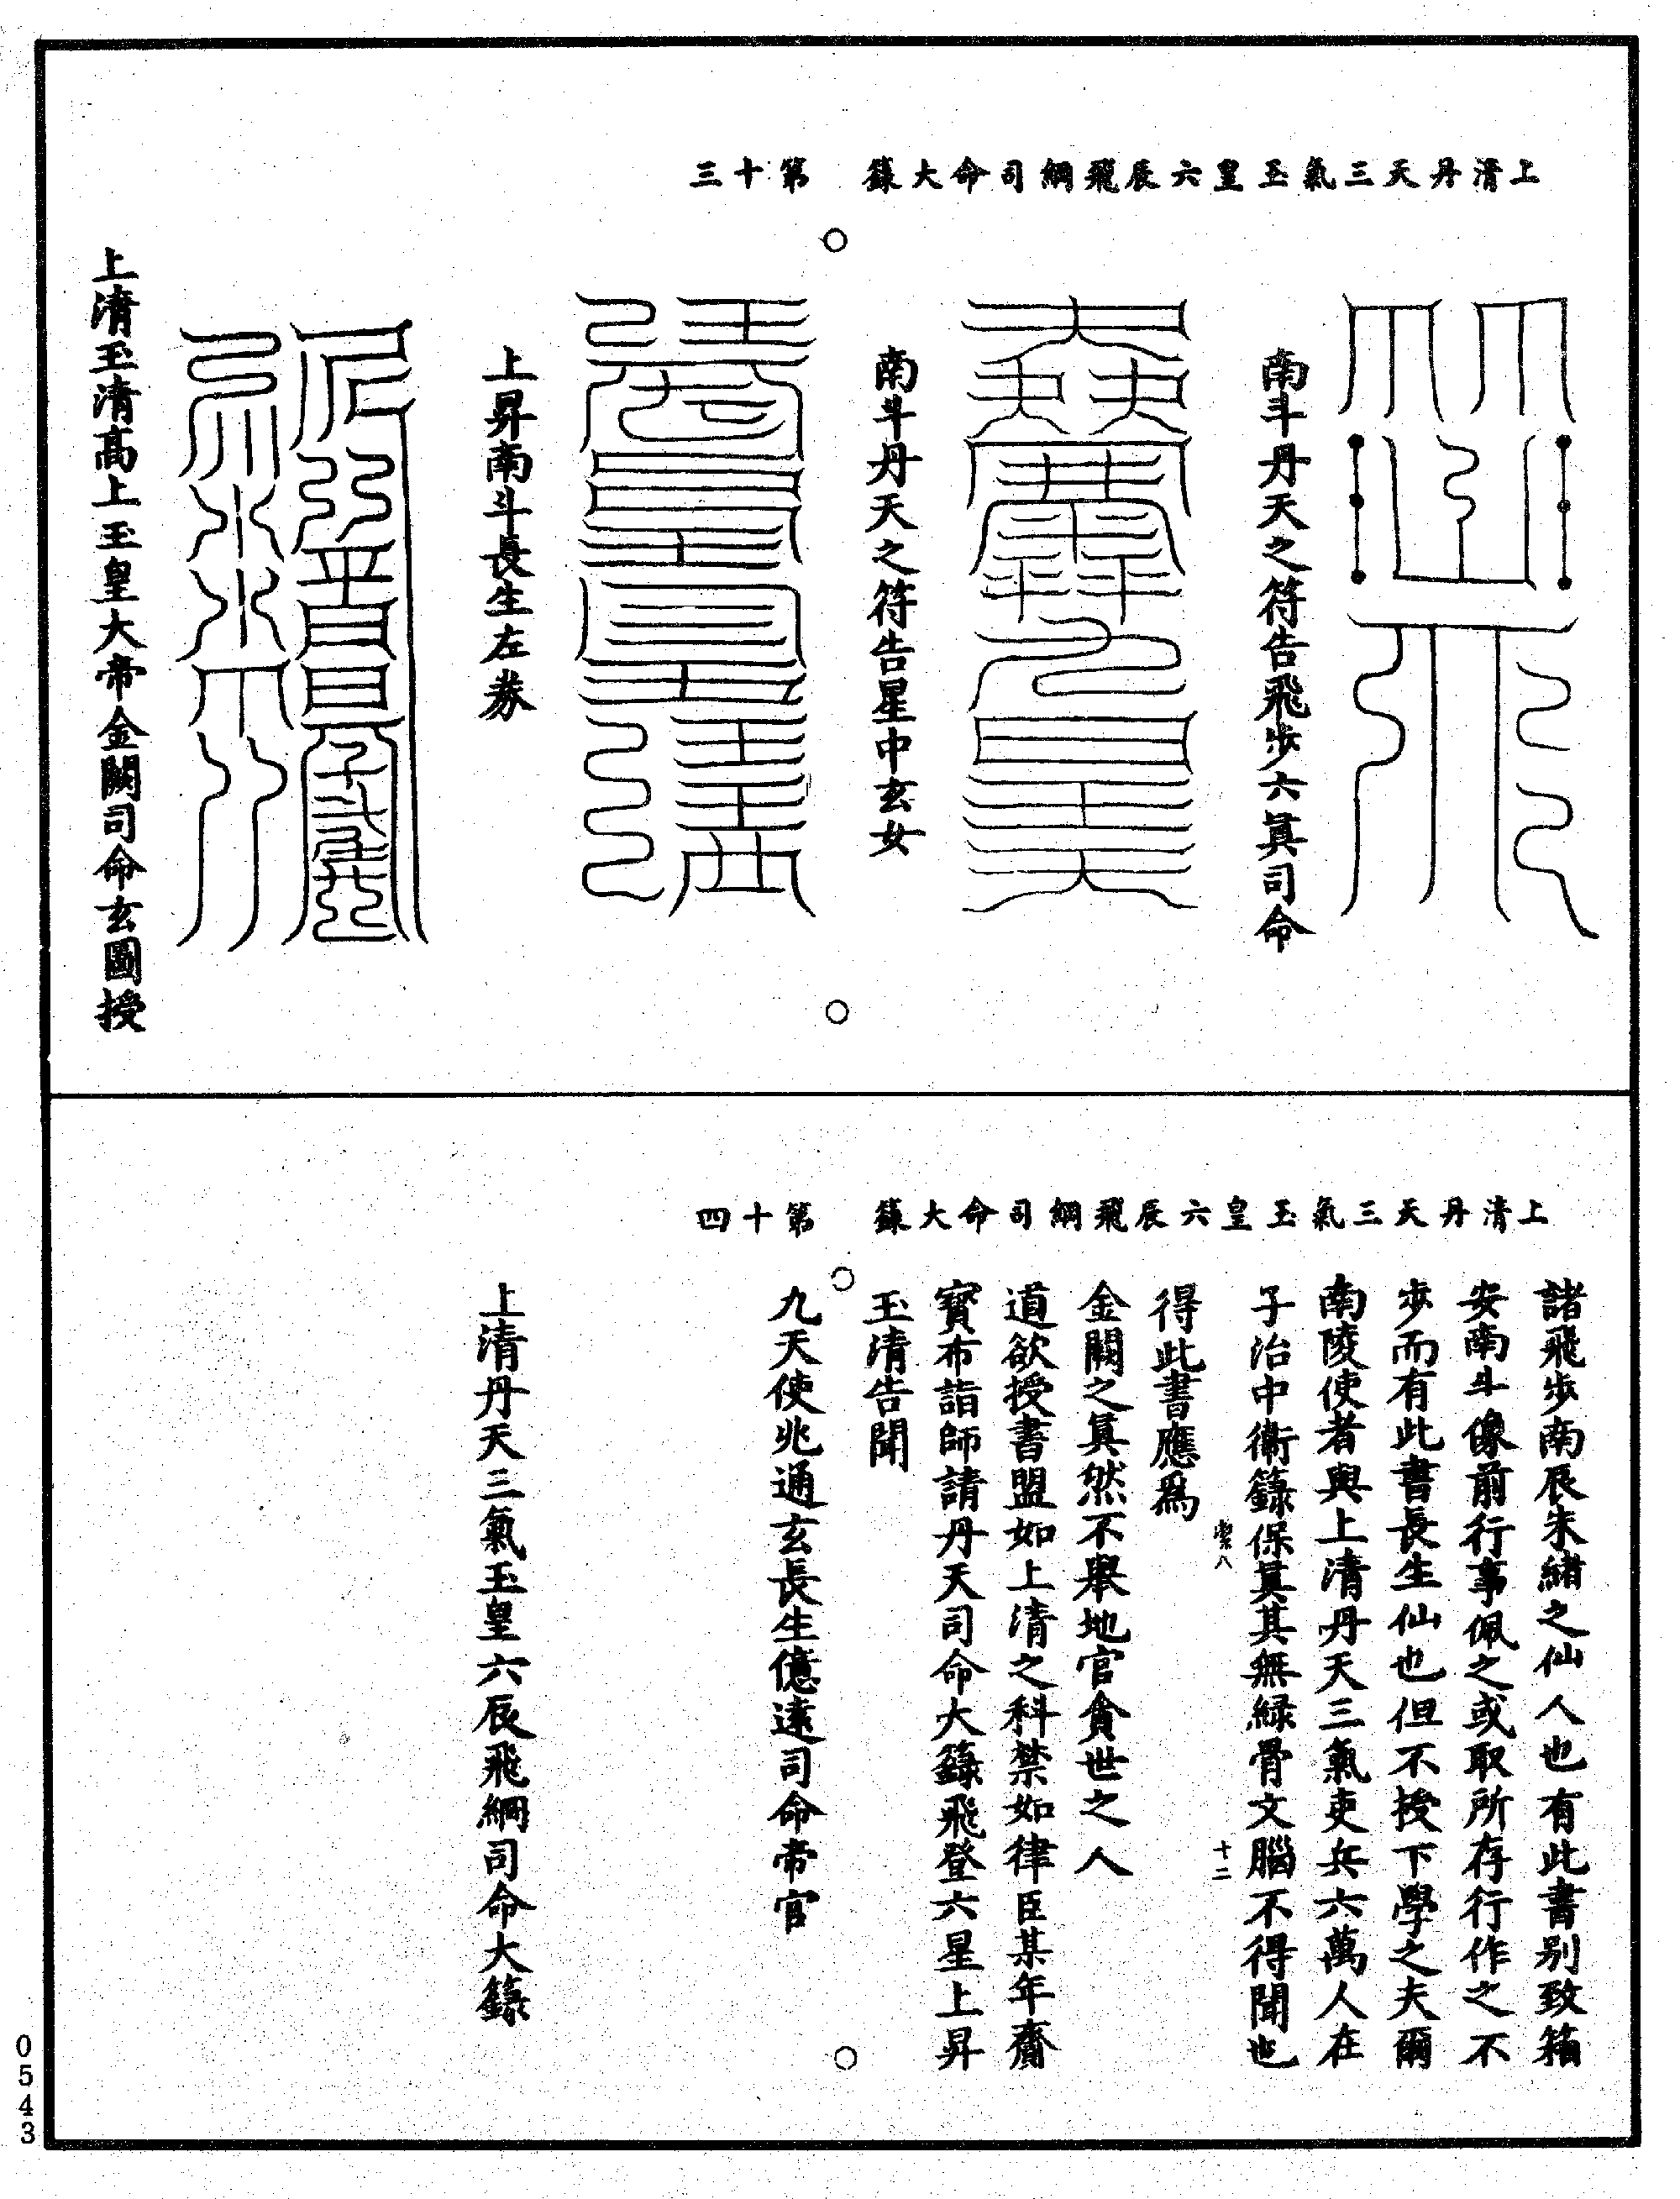 上清丹天三氣玉皇六辰飛綱司命大籙　第十三
南斗丹天之符告飛步六眞司命
南斗丹天之符告星中玄女
上昇南斗長生左券
上清玉清高上玉皇大帝金闕司命玄圖授
上清丹天三氣玉皇六辰飛綱司命大籙　第十四
諸飛步南辰朱緒之仙人也有此書别致箱
安南斗像前行事佩之或取所存行作之不
步而有此書長生仙也但不授下學之夫爾
南陵使者與上清丹天三氣吏兵六萬人在
子治中衞籙保其真其無緑骨文腦不得聞也
八　十二
得此書應爲
金闕之眞然不舉地官貪世之人
道欲授書盟如上清之科禁如律臣某年齎
寳布詣師請丹天司命大籙飛登六星上昇
玉清告聞
九天使兆通玄長生億遠司命帝官
上清丹天三氣玉皇六辰飛綱司命大籙
0543